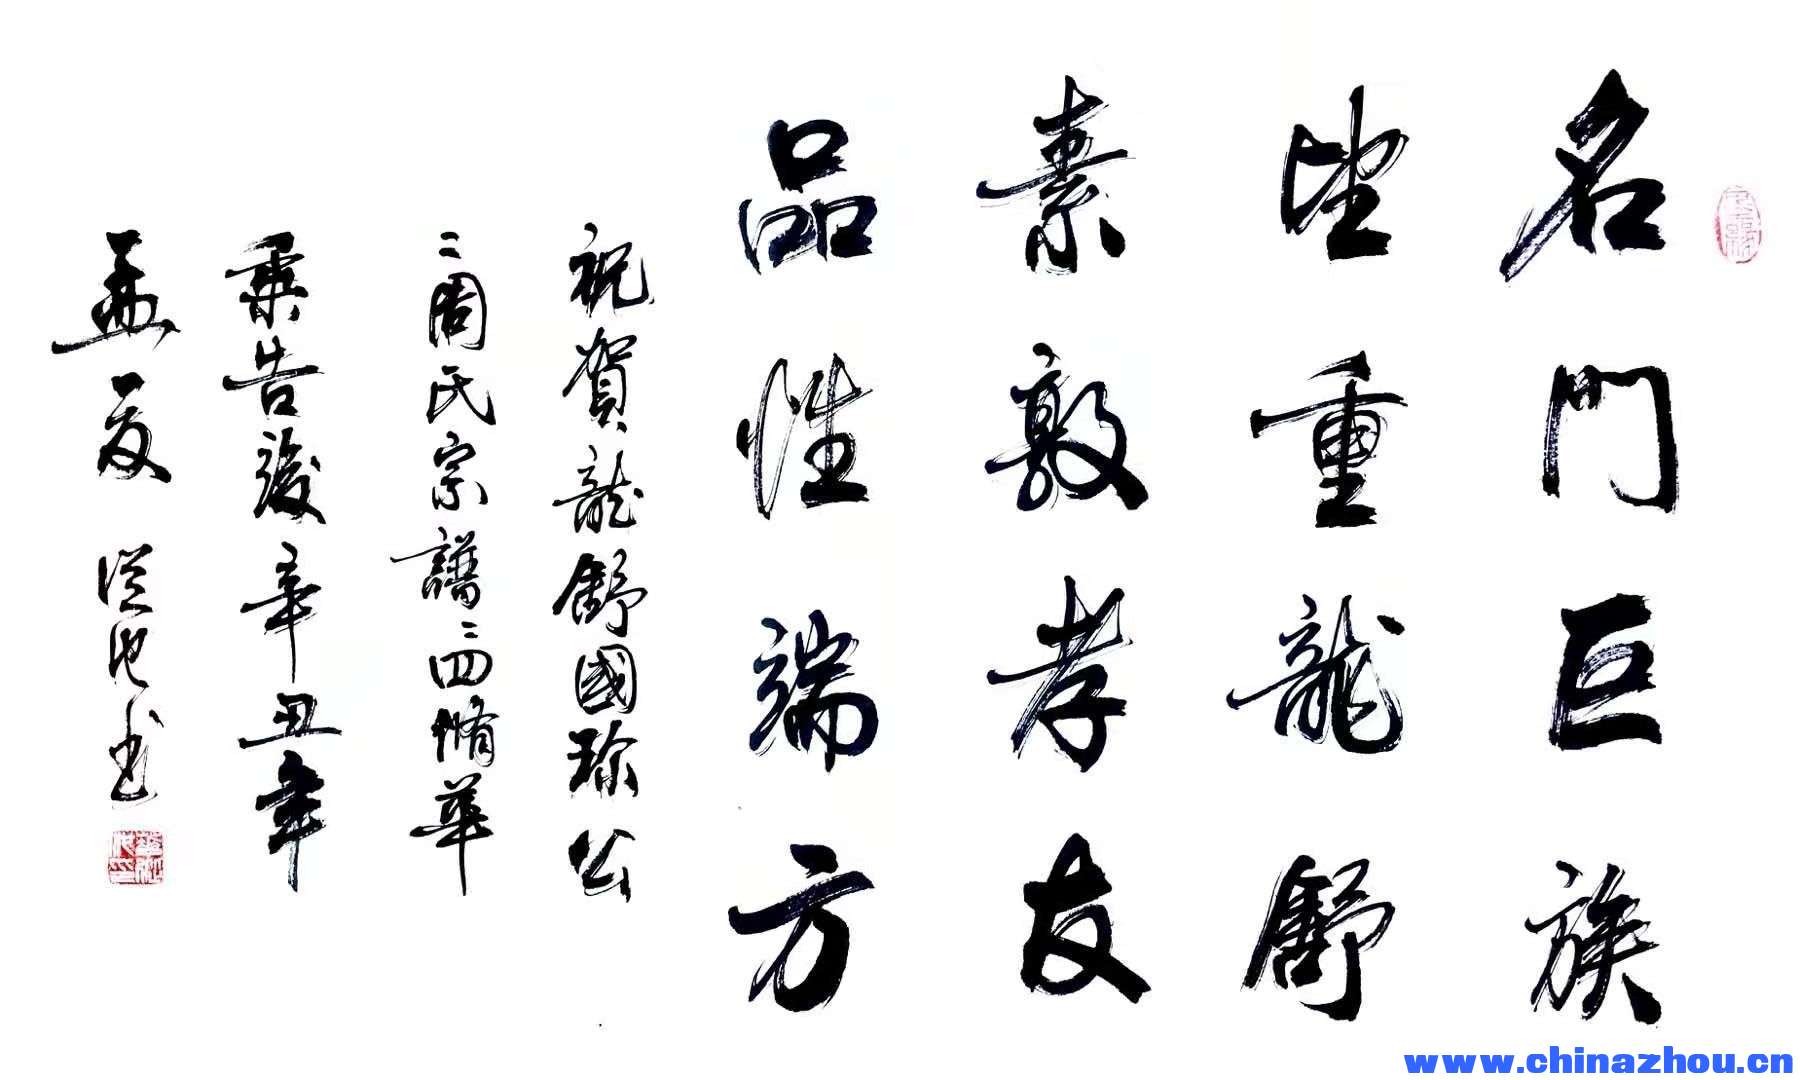 名門巨族
望重龍舒
素敦孝友
品性端方
祝賀龍舒國珍公
周氏宗譜四脩華
乘告竣辛丑年
孟夏 從书
www.chinazhou.cn